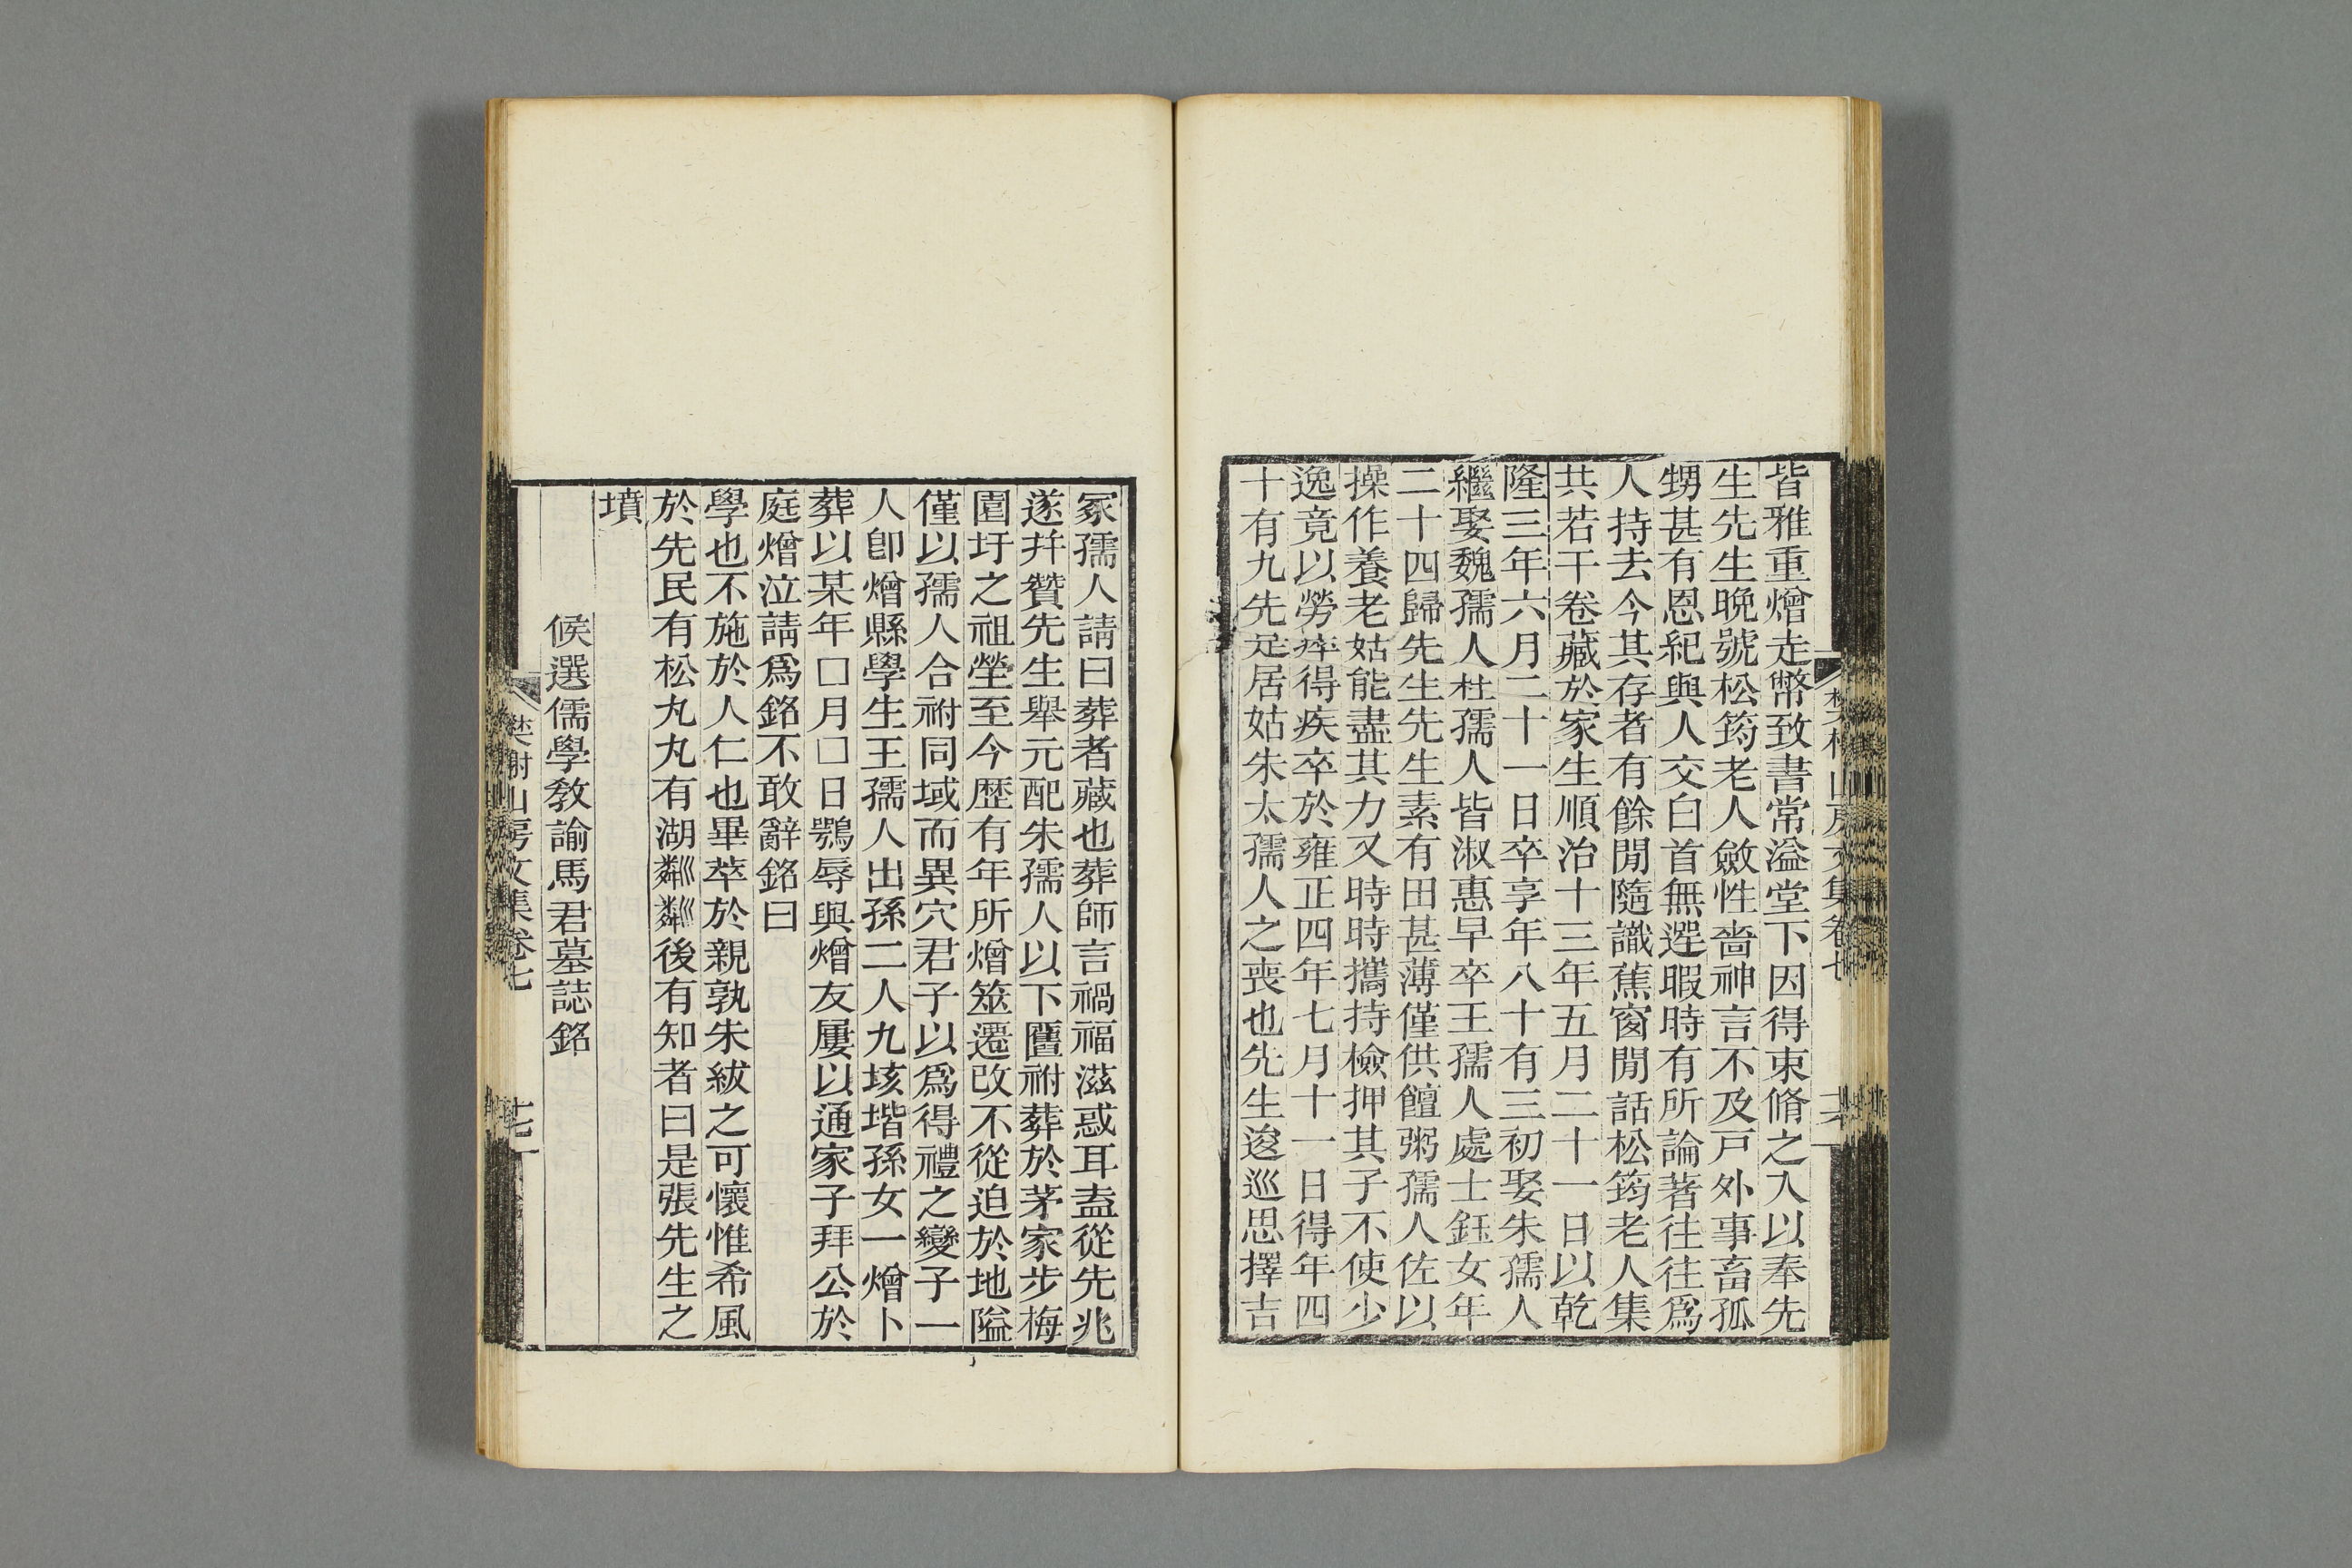 皆雅重熷走幣致書常溢堂下因得束脩之入以奉先
生先生晩號松筠老人斂性嗇神言不及戸外事畜孤
甥甚有恩紀與人交白首無遲暇時有所論著往往爲
人持去今其存者有餘閒隨識蕉窗閒話松筠老人集
共若干卷藏於家生順治十三年五月二十一日以乾
隆三年六月二十一日卒享年八十有三初娶朱孺人
繼娶魏孺人杜孺人皆淑惠早卒王孺人處士鈺女年
二十四歸先生先生素有田甚薄僅供饘粥孺人佐以
操作養老姑能盡其力又時時攜持檢押其子不使少
逸竟以勞瘁得疾卒於雍正四年七月十一日得年四
十有九先是居姑朱太孺人之喪也先生逡巡思擇吉
樊榭山房文集卷七
冢孺人請曰葬者藏也葬師言禍福滋惑耳盍從先兆
遂幷贊先生舉元配朱孺人以下匶祔葬於茅家步梅
園圩之祖塋至今歴有年所熷筮遷改不從迫於地隘
僅以孺人合祔同域而異穴君子以爲得禮之變子一
人卽熷縣學生王孺人出孫二人九垓堦孫女一熷卜
葬以某年□月□日鶚辱與熷友屢以通家子拜公於
庭熷泣請爲銘不敢辭銘曰
學也不施於人仁也畢萃於親孰朱紱之可懷惟希風
於先民有松丸丸有湖粼粼後有知者曰是張先生之
墳
候選儒學敎諭馬君墓誌銘
樊榭山房文集卷七
十七